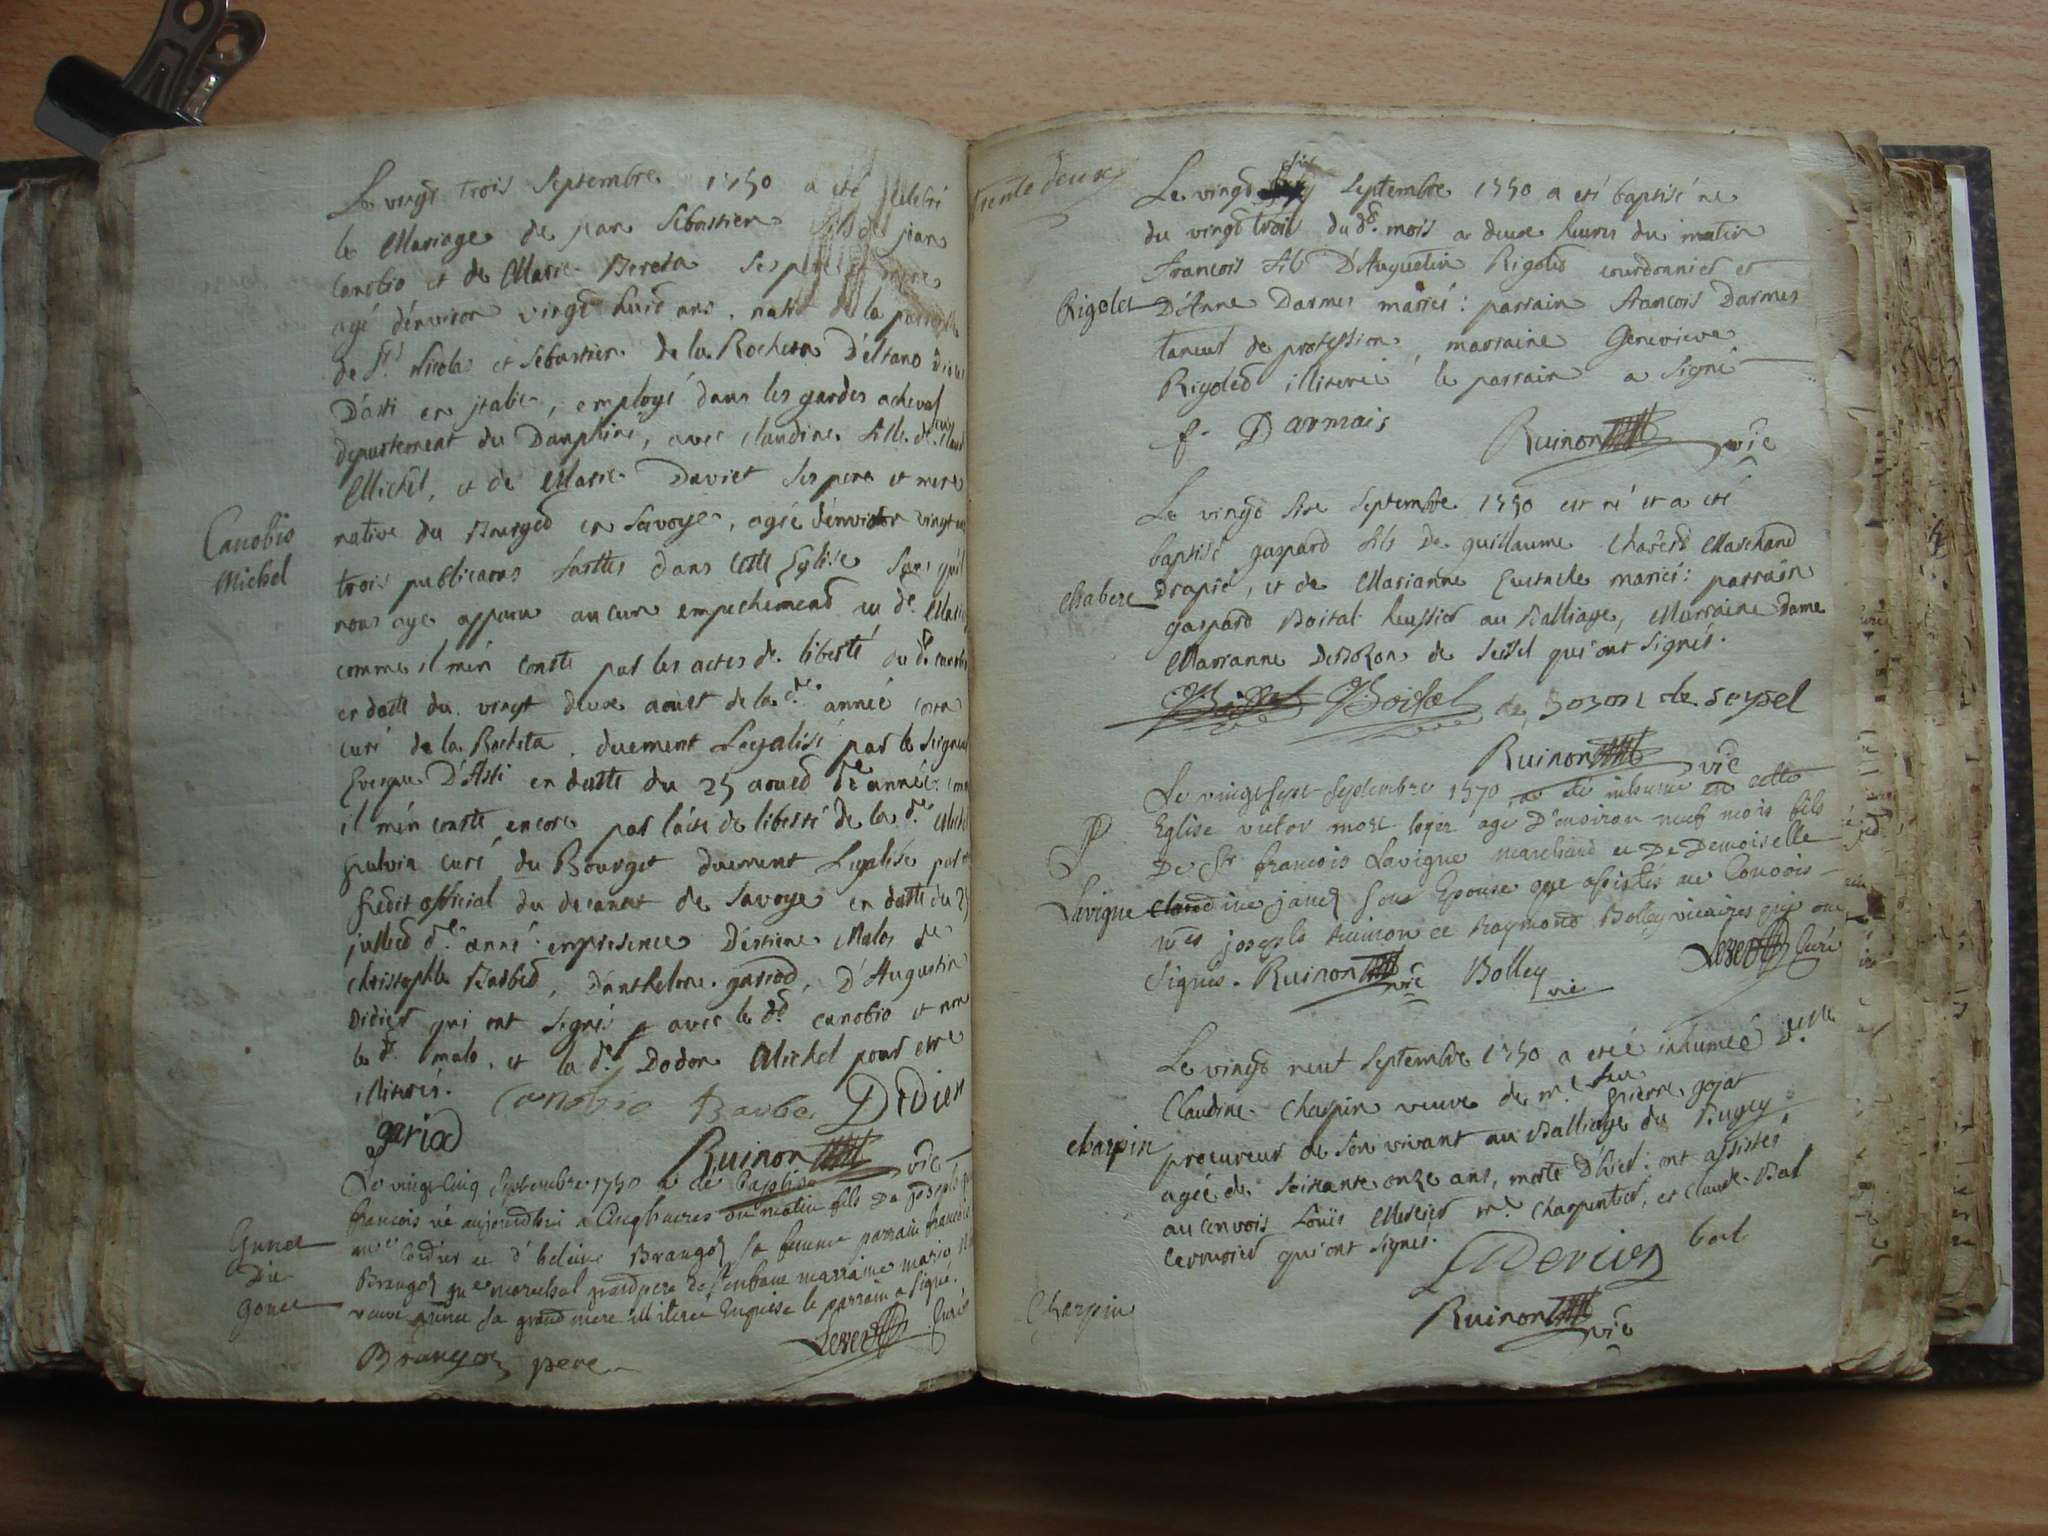 Le vingt trois Septembre 1750 a eté celebré
le Mariage de jean Sebastien fils de jean
Canobio et de Marie Bereta ses pere et mere
agé d'environ vingt huit ans, natif de la parroisse
de Sts Nicolas et Sebastien de la Rocheta
D'asti en jtalie, employé dans les gardes acheval
departement du Dauphiné, avec claudine fille de
Michel, et de Marie Daviet ses pere et mere
native du Bourget en Savoye, agée d'environ vingt
Canobio
Michel
trois publications faittes dans cette Eglise sans qu'il
nous aye apparu aucun empechement
comme il m'en conste par les actes de liberté
en datte du vingt deux aoust de la de année
curé de la Rocheta, duement Legalisé par le seigneur
Evesque D'Asti en datte du 25 aoust de année
il m'en conste encore par l'acte de liberté de la de
curé du Bourget duement Legalisé par
official du decanat de Savoye en datte du
juillet de anné enpresence D'estiene Malo de
christophle Barbet, D'anthelme gariod, D'Augustin
Didier qui ont signés avec le dt canobio et non
le dt malo, et la de Dodon Michel pour etre
illiterés.
Canobio Barbe Didier
gariod
Ruinon vic
Le vingt cinq Septembre 1750 a eté Baptisé
francois né aujourdhui a cinq heures du matin fils De joseph
et d'heleine Brangod sa femme parrain francois
Gunet
Dit
Gonet
Brangod marechal grandpere de l'enfant marraine marie
veuve sa grand mere illiteree enquise le parrain a signé.
curé
Brangod pere
trente deux
Le vingt six Septembre 1750 a eté baptisé né
du vingt trois du dt mois a deux heures du matin
francois fils D'Augustin Rigolet courdonnier et
Rigolet
D'Anne Darmes mariés: parrain francois Darmes
taneur de profession, marraine Genevieve
Rigolet illiterée le parrain a signé
f. Darmais
Ruinon vic
Le vingt six Septembre 1750 est né et a eté
baptisé gaspard fils de guillaume Chabert Marchand
Chabert
drapié, et de Marianne Eustache mariés: parrain
gaspard Boital huissier au Balliage, Marraine dame
Marianne DeBozon de Seisel qui ont signés.
Boital de Bozon de seysel
Ruinon vic
Le vingt sept Septembre 1750 a eté inhumé en cette
Eglise victor mort leger agé D'environ neuf mois fils
De Sr francois Lavigne marchand et De Demoiselle
Lavigne
claudine janet son Epouse ont assistés au convois
mes joseph Ruinon et Raymond Bolley vicaires qui ont
signés. Ruinon vic Bolley vic curé
Le vingt neuf Septembre 1750 a eteé inhumée delle
Claudine Charpin veuve de mr feu pierre gojat
Charpin
procureur de son vivant au Balliage du Bugey,
agée de soixante onze ans, morte d'hier: ont assistés
au convois Loüis Mercier me Charpentier, et claude Bal
qui ont signés.
Mercier bal
Charpin
Ruinon vic